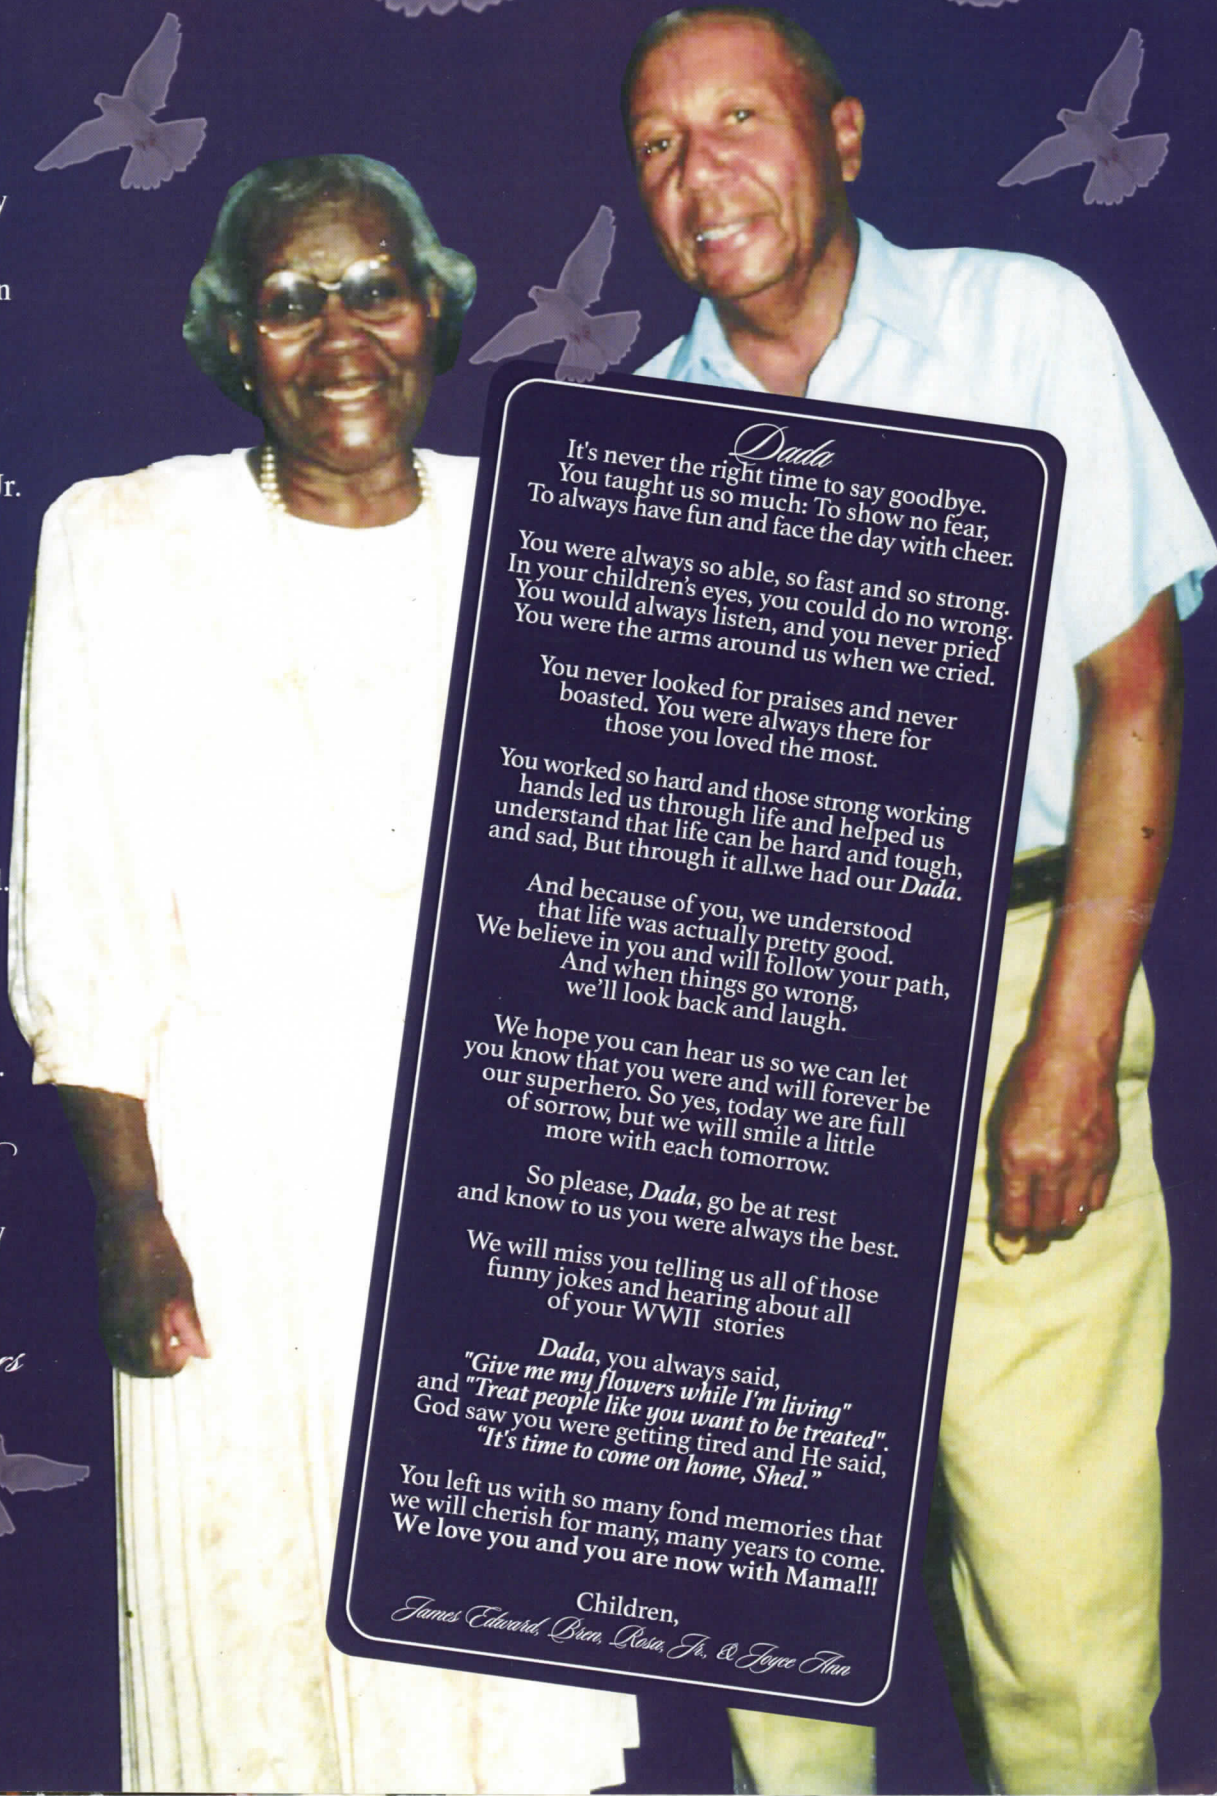 y
n
Jr.
Dada
It's never the right time to say goodbye.
You taught us so much: To show no fear,
To always have fun and face the day with cheer.
You were always so able, so fast and so strong.
In your children's eyes, you could do no wrong.
You would always listen, and you never pried
You were the arms around us when we cried.
You never looked for praises and never
boasted. You were always there for
those you loved the most.
You worked so hard and those strong working
hands led us through life and helped us
understand that life can be hard and tough,
and sad, But through it all.we had our Dada.
And because of you, we understood
that life was actually pretty good.
We believe in you and will follow your path,
And when things go wrong,
we'll look back and laugh.
We hope you can hear us so we can let
you know that you were and will forever be
our superhero. So yes, today we are full
of sorrow, but we will smile a little
more with each tomorrow.
So please, Dada, go be at rest
and know to us you were always the best.
We will miss you telling us all of those
funny jokes and hearing about all
of your WWII stories
Dada, you always said,
"Give me my flowers while I'm living"
and "Treat people like you want to be treated".
God saw you were getting tired and He said,
“It's time to come on home, Shed.”
You left us with so many fond memories that
we will cherish for many, many years to come.
We love you and you are now with Mama!!!
Children,
James Edward, Bren, Rosa, Jr., & Joyce Ann